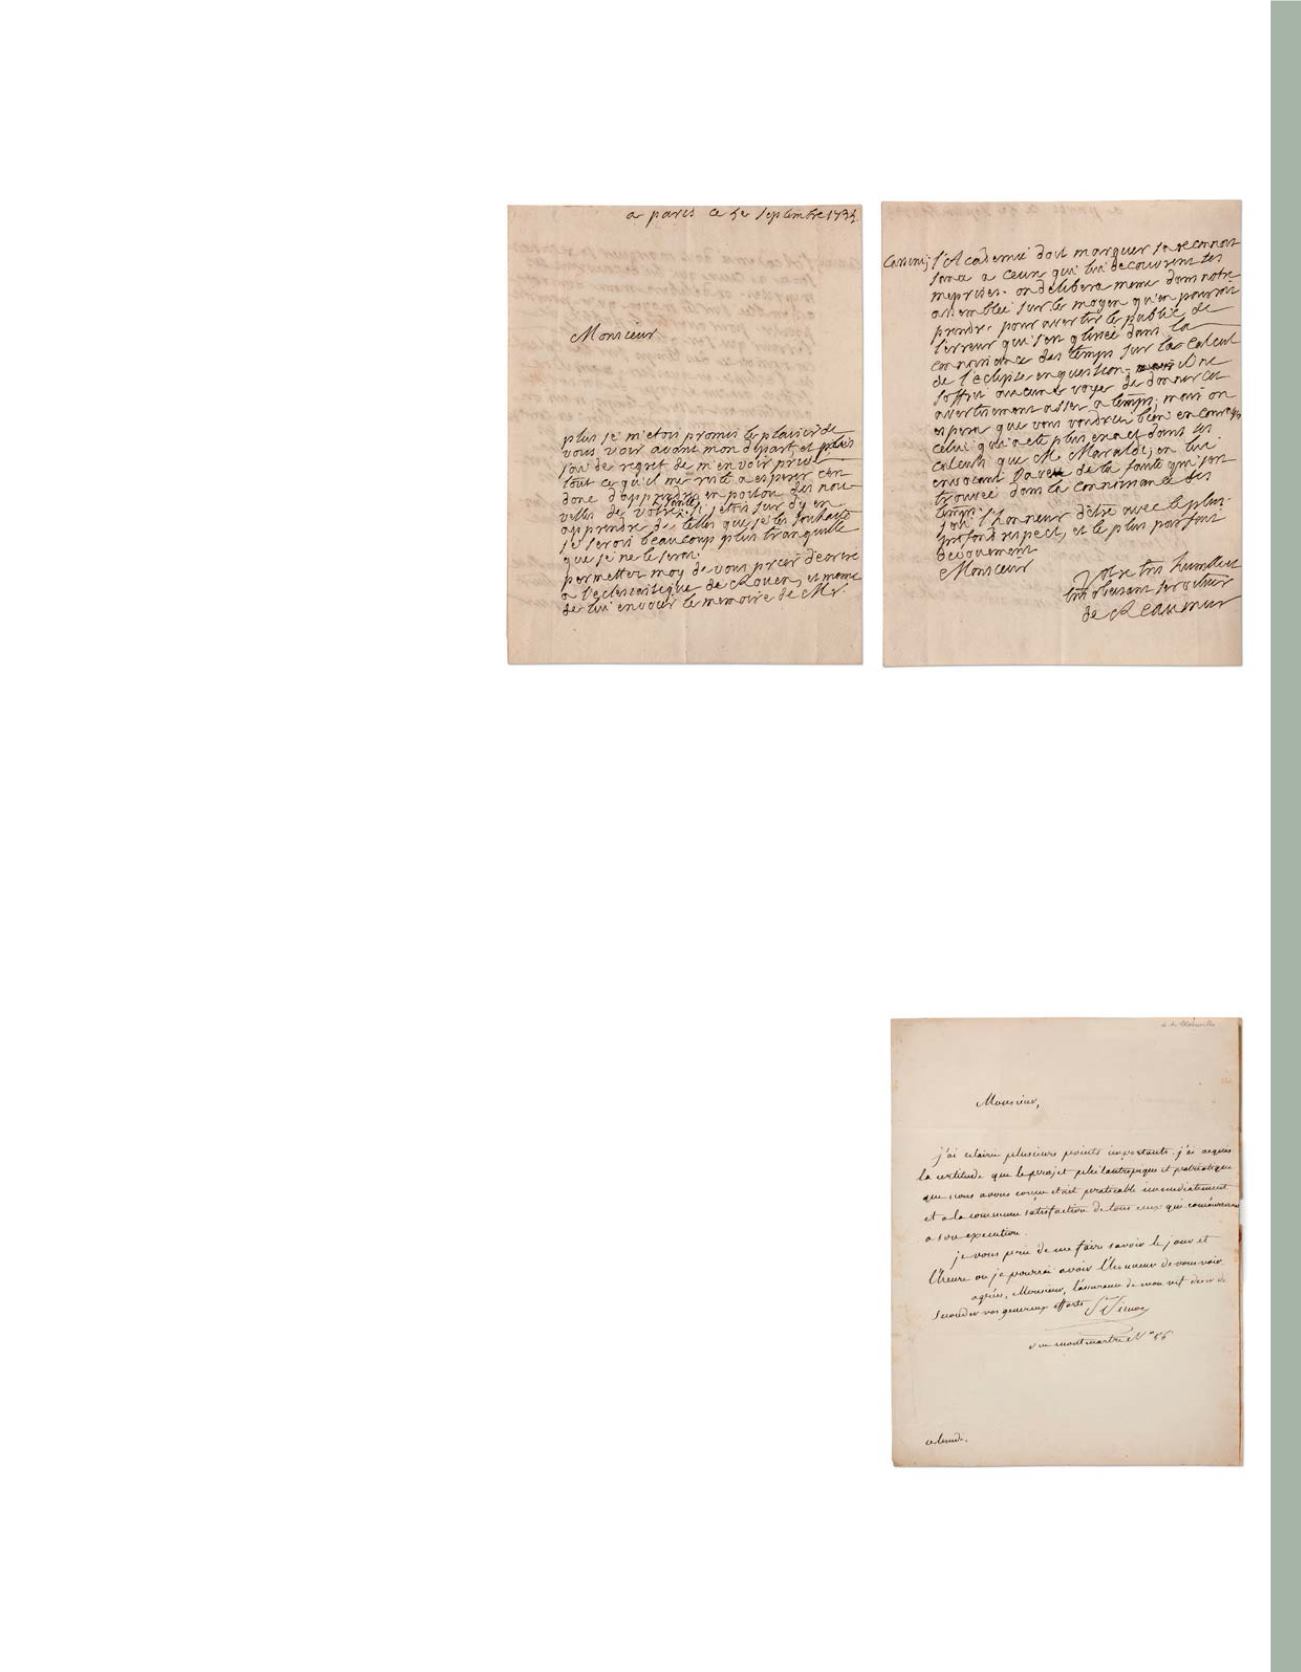 a paris ce 5e septembre 173
Monsieur
plus je m'etois promis le plaisir de
vous voir avant mon depart, et plus
j'ai de regret de m'en voir privé
tout ce qu'il me reste a esperer c'en
donc d'apprendre en poitou des nou-
velles de votre santé, si j'etois sur d'y en
apprendre de telles que je les souhaite
je serois beaucoup plus tranquille
que je ne le serai.
permettez moy de vous prier d'ecrire
a l'eclesiastique de Rouen, et meme
de lui envoier le memoire de Mr.
Cassini, l'Academie doit marquer sa reconnois
sance a ceux qui lui decouvrent ses
meprises. on delibera meme dans notre
assemblée sur le moyen qu'on pourroit
prendre pour avertir le public de
l'erreur qui s'en glissée dans la
connoissance des temps sur le calcul
de l'eclipse en question. il ne
s'offrit aucune voye de donner cet
avertissement assez a temps; mais on
espera que vous voudriez bien encourager
celui qui a eté plus exact dans ses
calculs que M. Maraldi, en lui
envoiant l'aveu de la faute qui s'en
trouvée dans la connoissance des
temps.
j'ai l'honneur d'etre avec le plus
profond respect, et le plus parfait
devouement
Monsieur
Votre tres humble et
tres obeissant serviteur
de Reaumur
Monsieur,
j'ai eclairci plusieurs points importants. j'ai acquis
la certitude que le projet philantropique et patriotique
que nous avons conçu etait praticable immediatement
et a la commune satisfaction de tous ceux qui concoureront
a son execution.
je vous prie de me faire savoir le jour et
l'heure ou je pourrai avoir l'honneur de vous voir
agréez, Monsieur, l'assurance de mon vif desir de
seconder vos genereux efforts St Simon
rue montmartre N°
ce lundi.